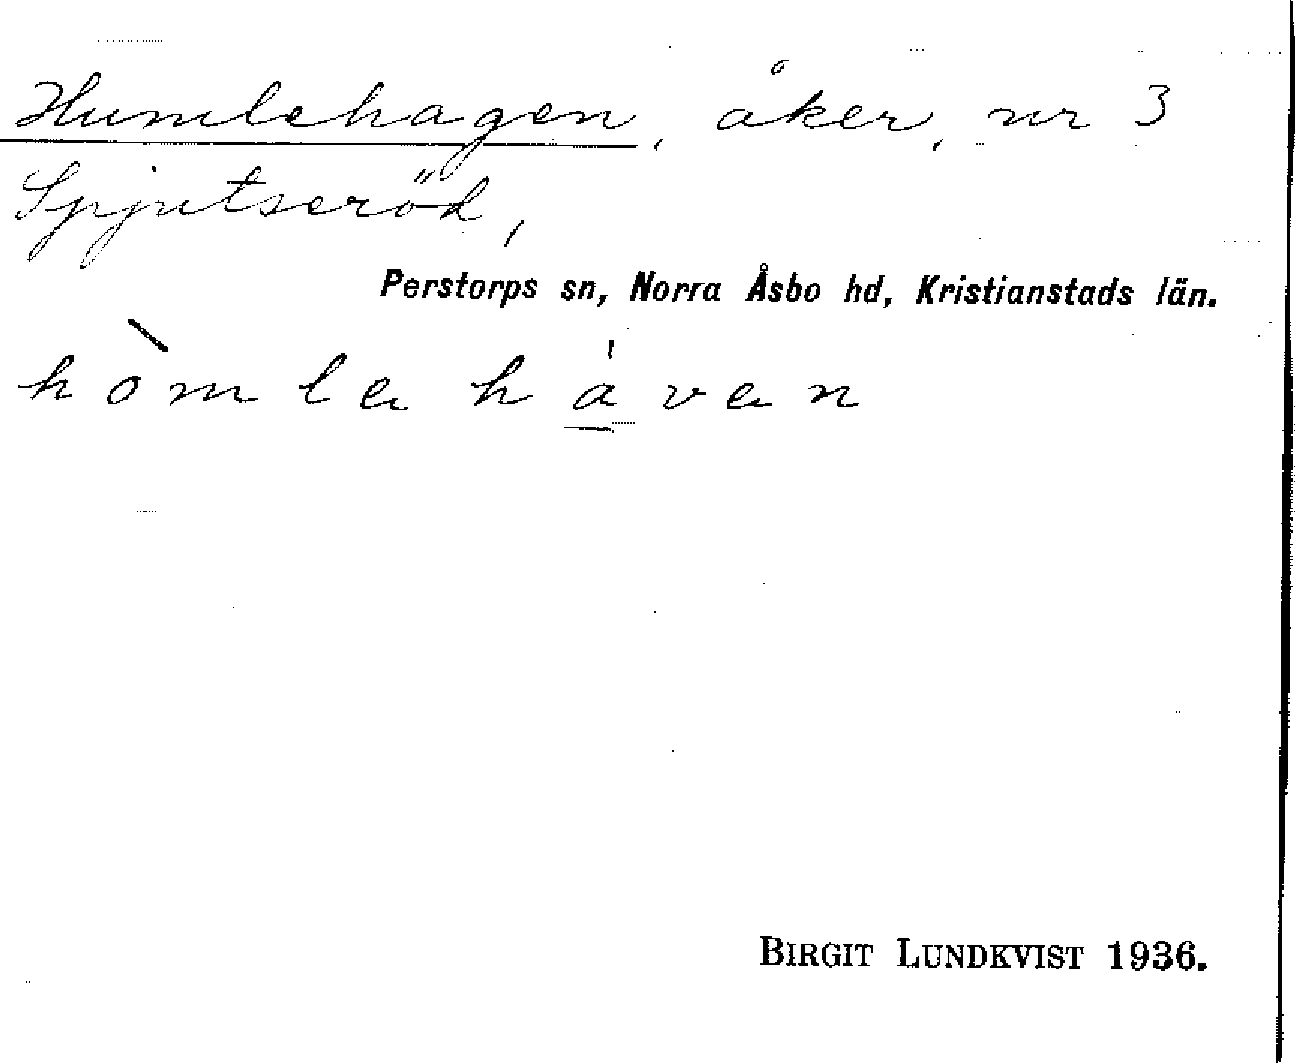 Humlehagen, åker, nr 3
Spjutseröd,
Perstorps sn, Norra Åsbo hd, Kristianstads län.
hòmle háven
BIRGIT LUNDKVIST 1936.